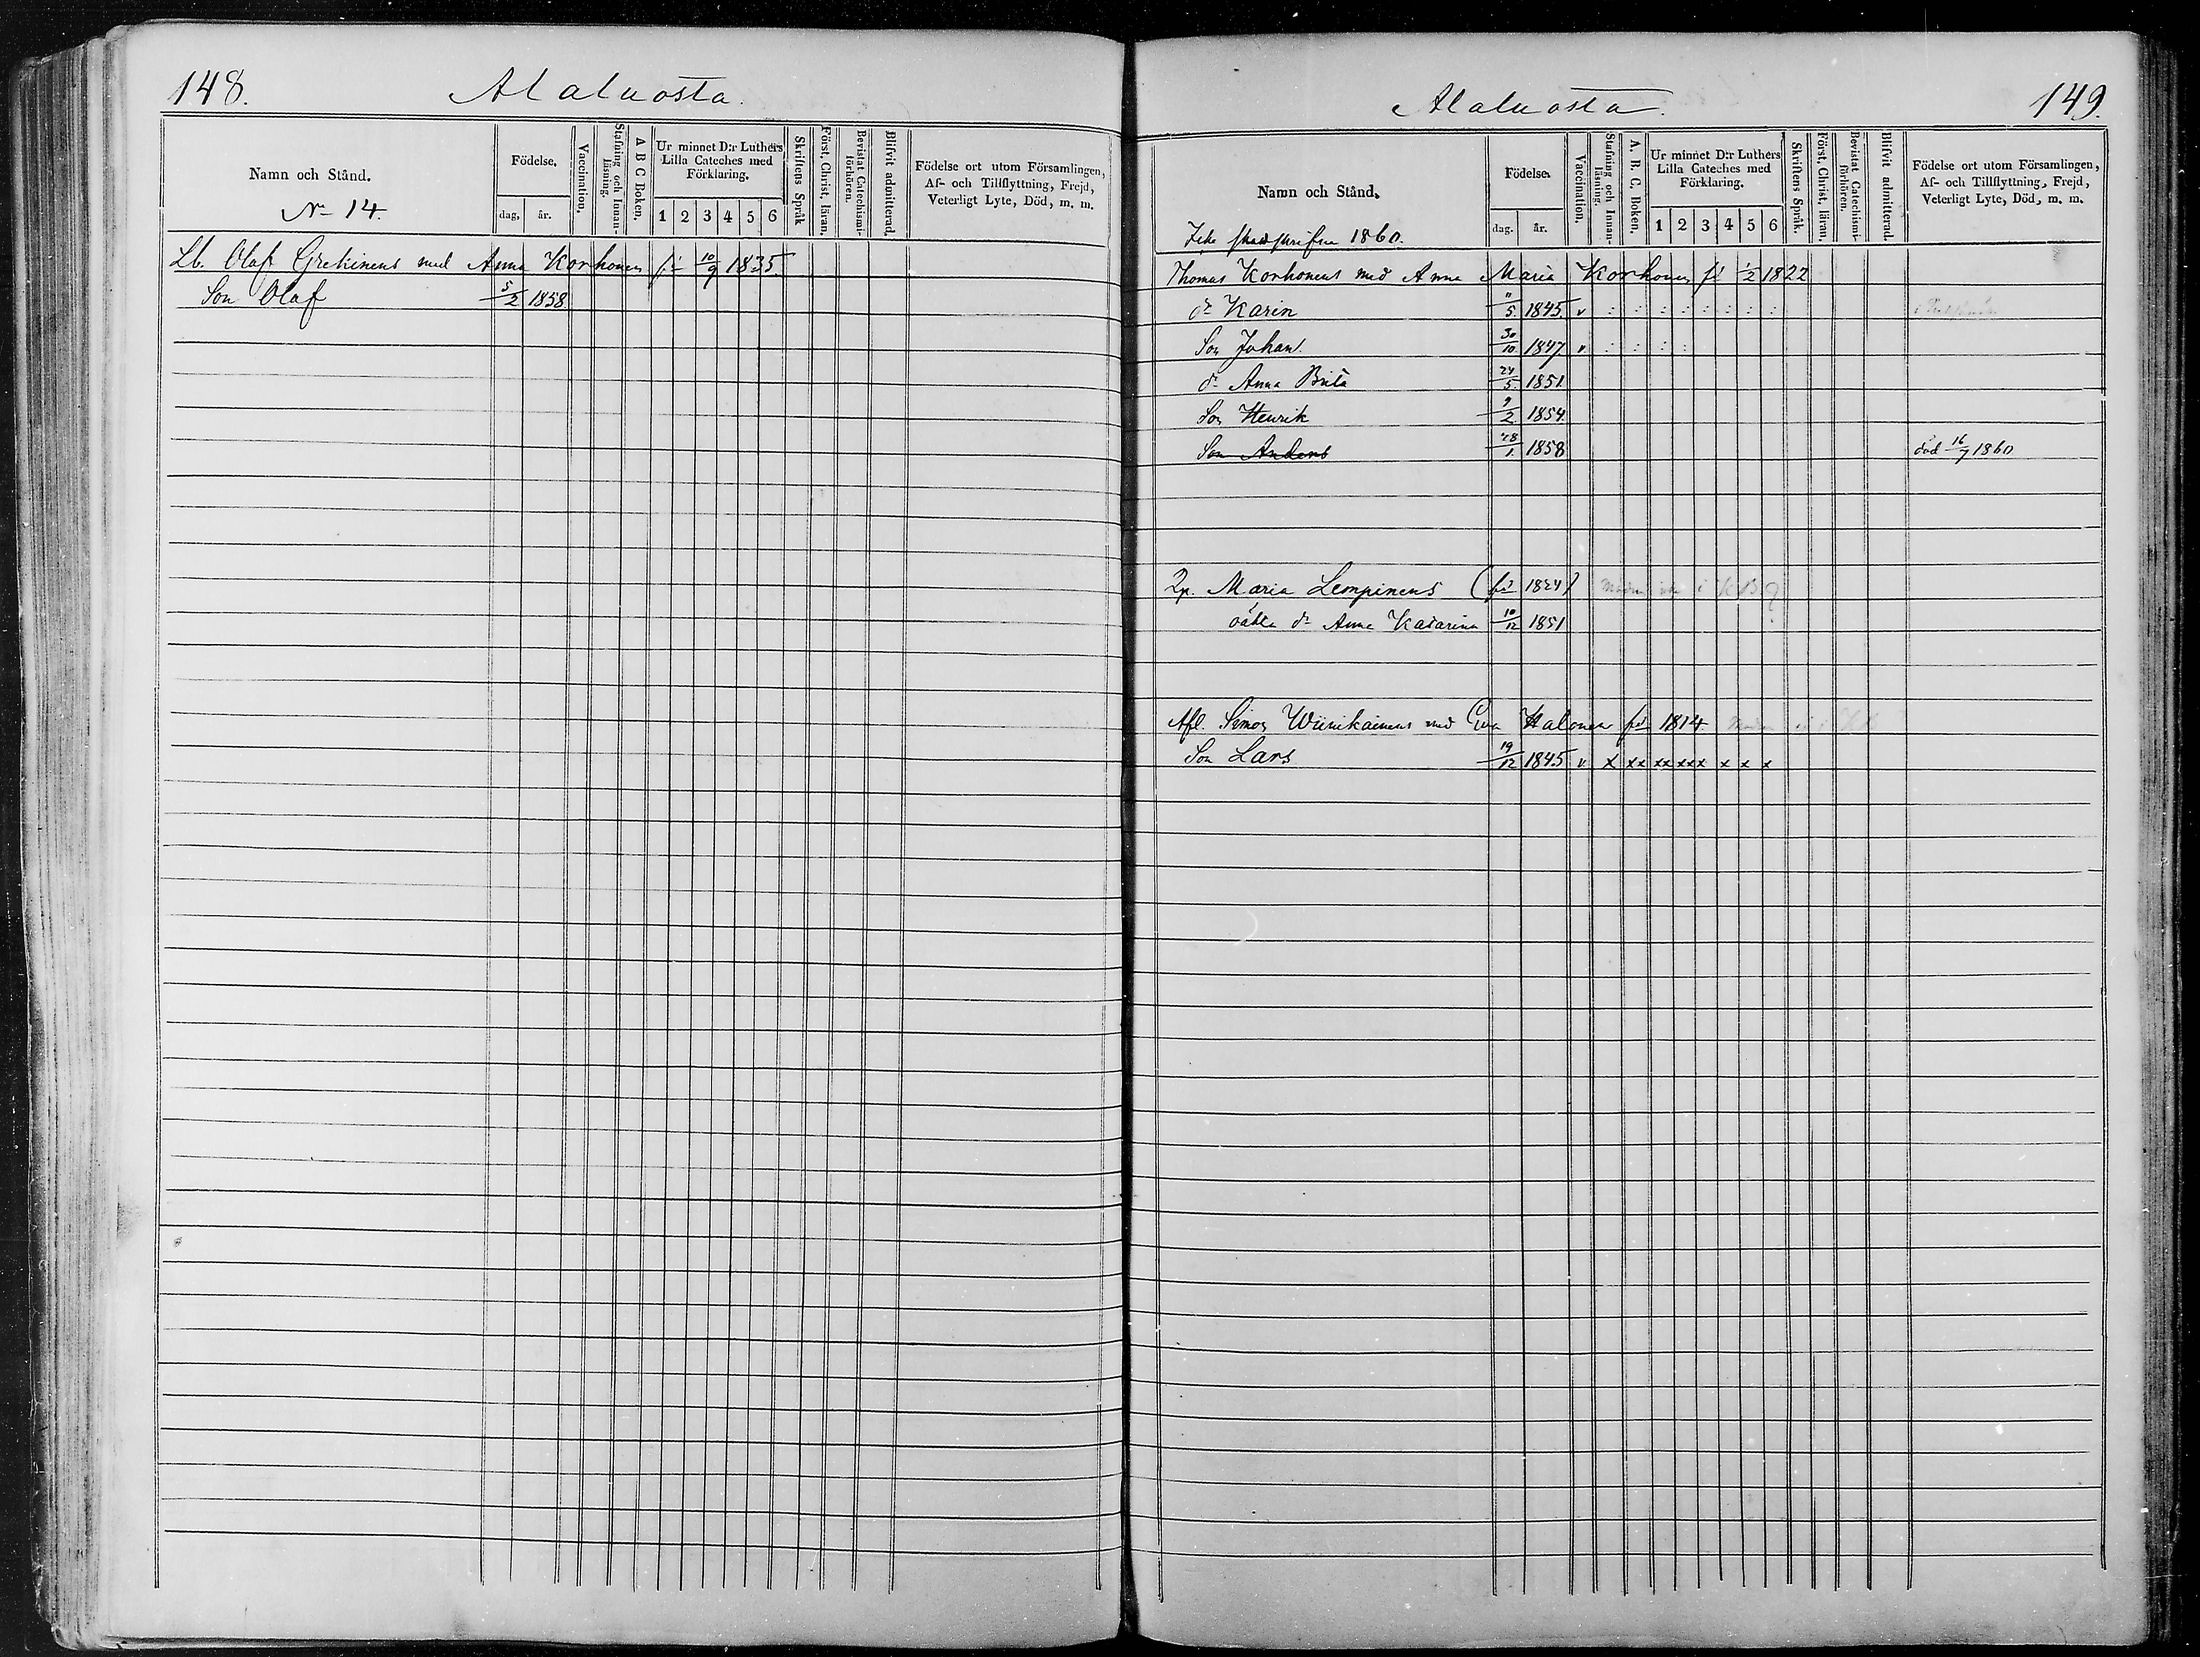 148.
Alaluosta.
Namn och Stånd.
No 14.
Födelse.
dag.
år.
Vaccination.
Stafning och Innanläsning.
A B C Boken.
Ur minnet D:r Luthers Lilla Cateches med Förklaring.
1 2 3 4 5 6
Skriftens Språk
Först. Christ. läran.
Bevistat Catechismiförhören.
Blifvit admitterad.
Födelse ort utom Församlingen,
Af- och Tillflyttning, Frejd,
Veterligt Lyte, Död, m. m.
Lb. Olaf med Anna Korhonen fd 10/9 1835
Son Olaf 5/2 1858
Alaluosta.
149.
Namn och Stånd.
Icke 1860.
Födelse.
dag.
år.
Vaccination.
Stafning och Innanläsning.
A. B. C. Boken.
Ur minnet D:r Luthers Lilla Cateches med Förklaring.
1 2 3 4 5 6
Skriftens Språk.
Först. Christ. läran.
Bevistat Catechismiförhören.
Blifvit admitterad.
Födelse ort utom Församlingen,
Af- och Tillflyttning, Frejd,
Veterligt Lyte, Död, m. m.
Thomas Korhonens med Anna Maria Korhonen fd 1/2 1822
dr Karin 11/5 1845 v : : : : : : : :
Son Johan 30/10 1847 v : : : :
dr Anna Brita 24/5 1851
Son Henrik 9/2 1854
Son Anders 28/1 1858 död 16/7 1860
Maria Lempinens (fd 1824) i KB ?
oäkta dr Anna Katarina 10/12 1851
Afl. Simon Wiinikainens med Eva Halonen fd 1814
Son Lars 19/12 1845 v x xx xx xxx x x x